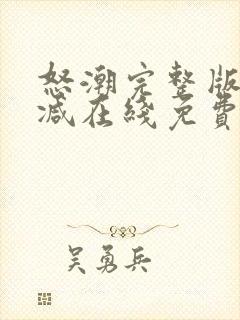 怒潮完整版
减在綫免費
吴勇兵